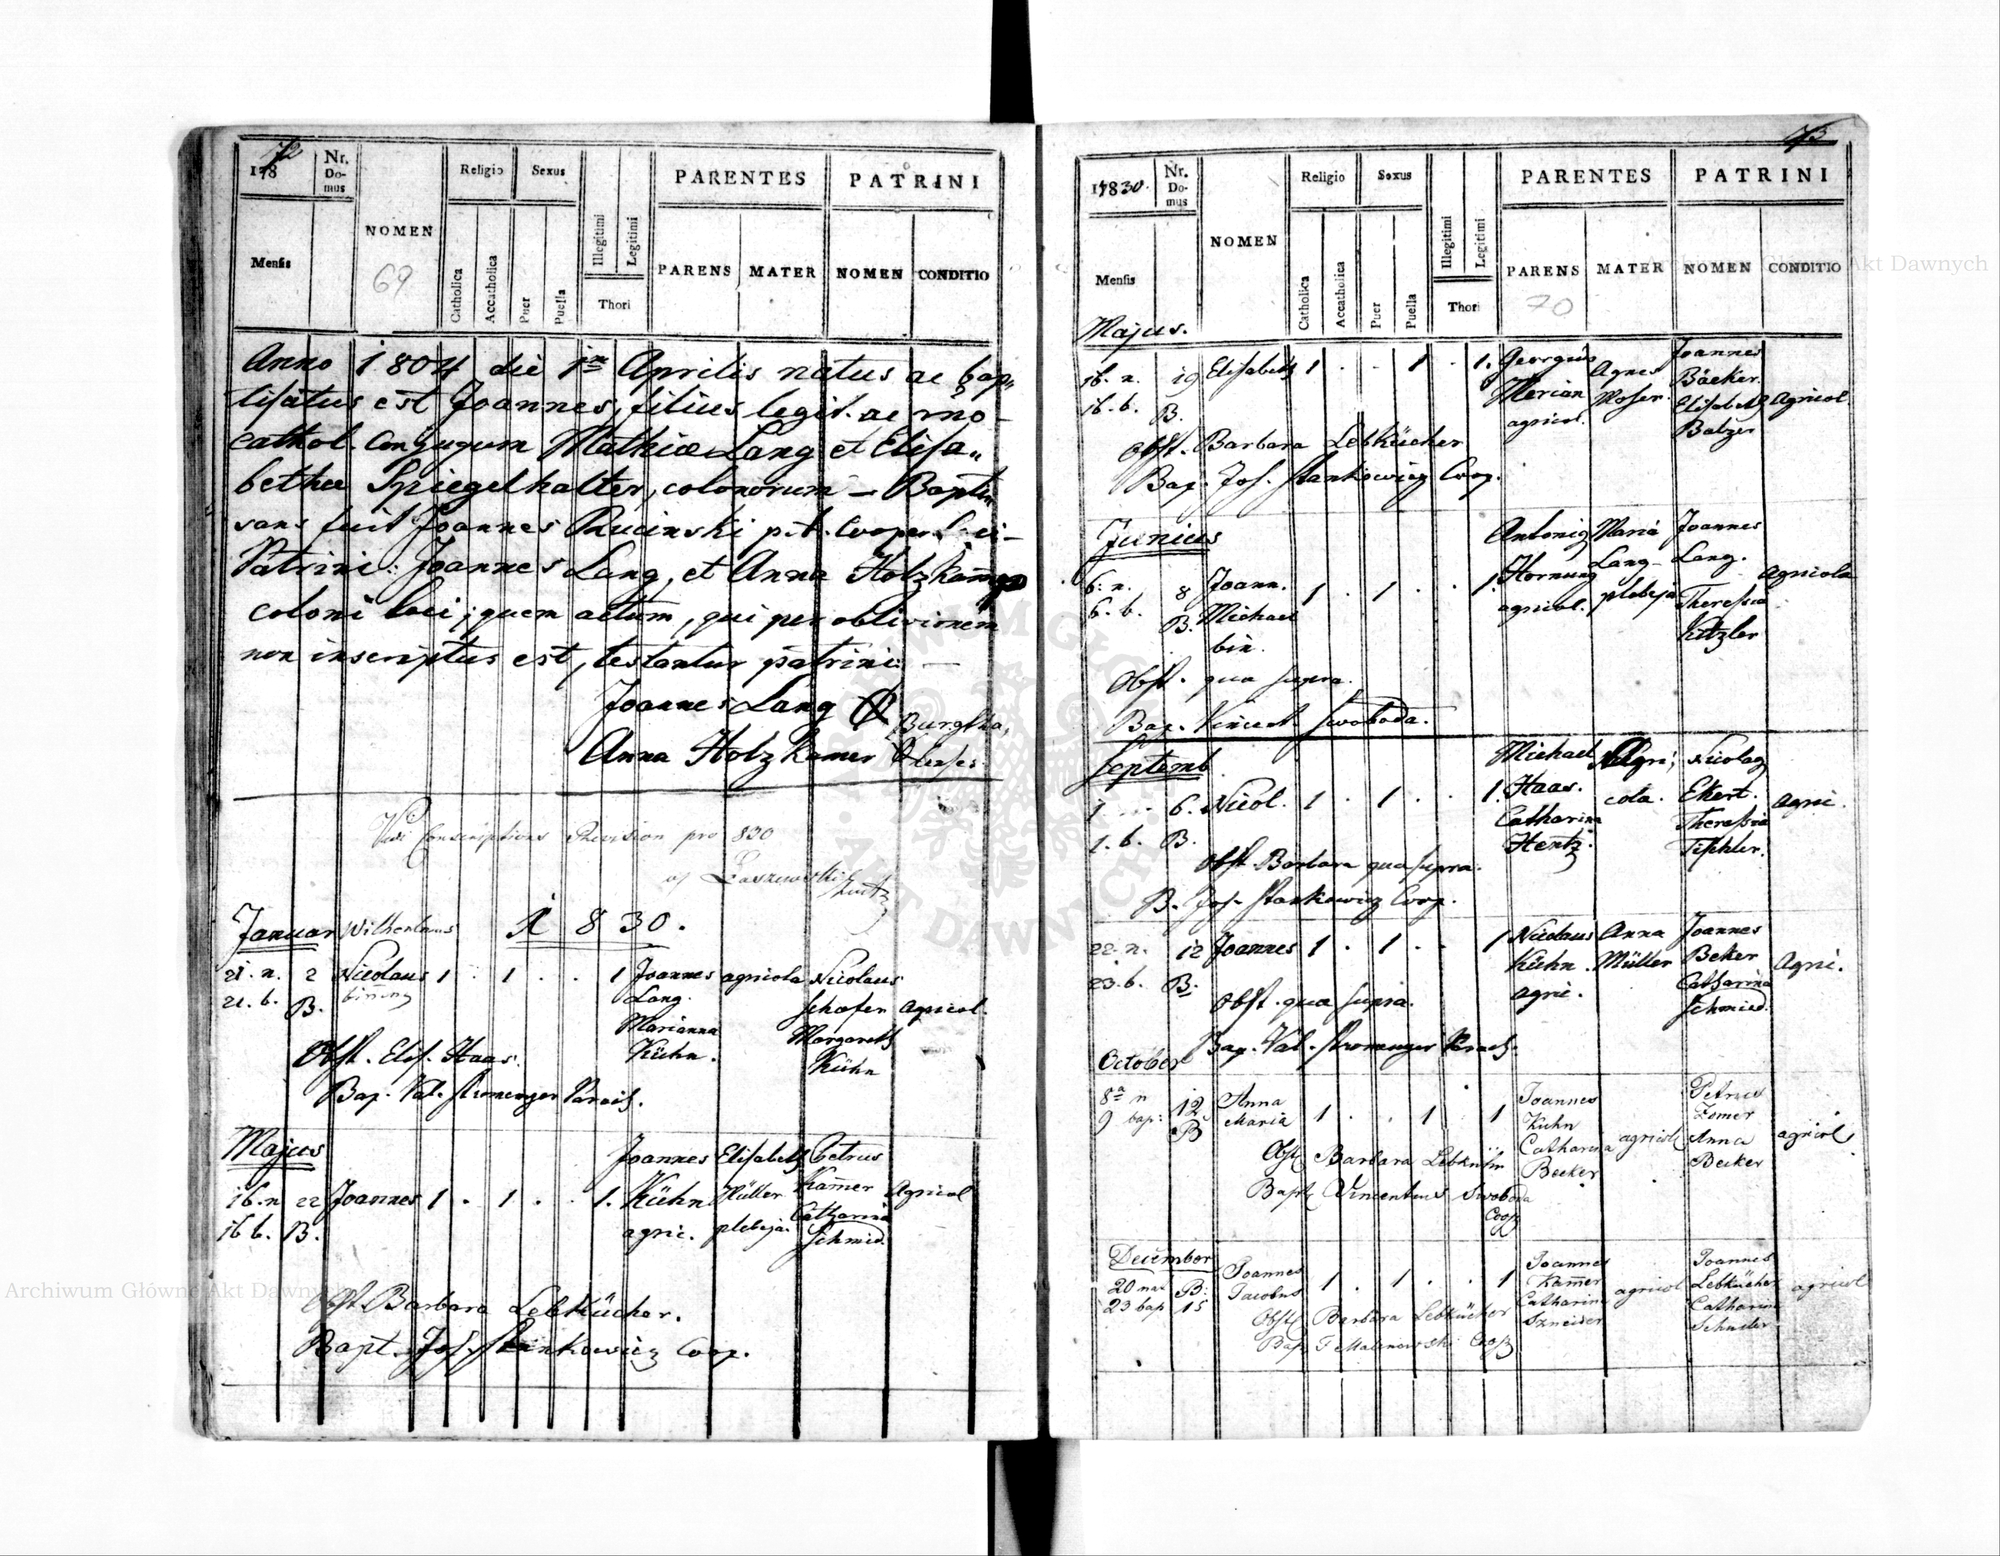 72
178
Nr. Domus
NOMEN
Religio
Sexus
PARENTES
PATRINI
Mensis
Catholica
Accatholica
Puer
Puella
Illegitimi
Legitimi
Thori
PARENS
MATER
NOMEN
CONDITIO
69
Anno 1804 die 1ma Aprilis natus ac bap„
tisatus est Joannes, filius legit. ac
cathol. Conjugum Mathiae Lang et Elisa„
bethae Spiegelhalter, colonorum — Bapti
sans fuit Joannes Rucinski p.t. Cooper. Loci –
Patrini: Joannes Lang, et Anna Holzkam̄er
coloni loci; quem actum, qui per oblivionem
non inscriptus est, testantur patrini: —
Joannes Lang
Anna Holzkamer
Vidi Conscriptions Revision pro 830
Januar Wilhelmus 1830.
21. n. 2 Nicolaus 1 . 1 . . 1 Joannes agricola Nicolaus
21. b. B. Lang. Schafer agricol.
Marianna Margareth
Kühn. Kühn
Obst. Elis. Haas.
Bap. Val. Stromenger Paroch.
Majus Joannes Elisabeth Petrus
16. n 22 Joannes 1 . 1 . . 1. Kühn Müller Kam̄er Agricol
16 b. B. agric. plebeja. Catharina
Schmied.
Obst. Barbara Lebkücher.
Bapt. Jos. Stankowicz Coop.
73
17830.
Nr. Domus
NOMEN
Religio
Sexus
PARENTES
PATRINI
Mensis
Catholica
Accatholica
Puer
Puella
Illegitimi
Legitimi
Thori
PARENS
MATER
NOMEN
CONDITIO
70
Majus.
16. n. 19 Elisabeth 1 . . 1 . 1. Georgius Agnes Joannes
16. b. B. Merian Moser. Bäcker. Agricol.
agricol. Elisabeth
Balzer
Obst. Barbara Lebkücher
Bap. Jos. Stankowicz Coop.
Junius Antonig Maria Joannes
6. n. 8 Joann. 1 . 1 . . 1. Hornung Lang. Lang. Agricola
6. b. B. Michael agricol. plebeja Theressia
bin. Kitzler
Obst. qua supra.
Bap. Vincent. Swoboda.
Septemb. Michael Agri; Nicolag
1 6. Nicol. 1 . 1 . . 1. Haas. cola. Ekert. Agric.
1. b. B. Catharina Theressia
Hentz. Tischler.
Obst. Barbara qua supra.
B. Jos. Stankowicz Coop.
22. n. 12 Joannes 1 . 1 . . 1 Nicolaus Anna Joannes
23. b. B. Kühn. Müller Beker Agric.
agric. Catharina
Schmied.
Obst. qua supra.
Bap. Val. Stromenger Paroch.
October
8a n 12 Anna 1 . . 1 1 Joannes Petrus
9 bap: B Maria Kühn Zomer
Catharina agricol Anna agricol
Becker Becker
Obst Barbara Lebkuchn
Bapt Vincentius Swoboda
Coop
December
20 nat B: Joannes 1 . 1 . . 1 Joannes Joannes
23 bap 15 Jacobus Kam̄er agricol Lebkücher agricol
Catharina Catharina
Szneider Schneider
Obst Barbara Lebkücher
Bap F Malinowski Coop
Archiwum Główne Akt Dawnych
Archiwum Główne Akt Dawnych
ARCHIWUM GŁÓWNE AKT DAWNYCH